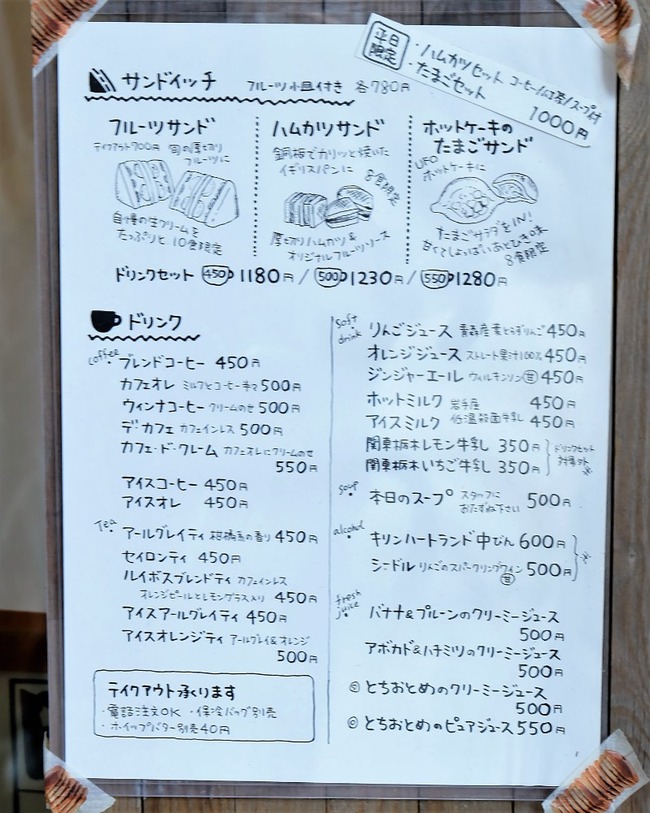 平日限定
・ハムカツセット コーヒー/紅茶/スープ付
・たまごセット 1000円
サンドイッチ フルーツ小皿付き 各780円
フルーツサンド
テイクアウト700円 旬の厚切り
フルーツに
自慢の生クリームを
たっぷりと 10食限定
ハムカツサンド
銅板でカリッと焼いた
イギリスパンに
8食限定
厚切りハムカツ&
オリジナルフルーツソース
ホットケーキの
たまごサンド
UFO
ホットケーキに
たまごサラダをIN!
甘くてしょっぱいあとひき味
8食限定
ドリンクセット 450 1180円 / 500 1230円 / 550 1280円
ドリンク
coffee
ブレンドコーヒー 450円
カフェオレ ミルクとコーヒー半々 500円
ウィンナコーヒー クリームのせ 500円
デ・カフェ カフェインレス 500円
カフェ・ド・クレーム カフェオレにクリームのせ
550円
アイスコーヒー 450円
アイスオレ 450円
Tea
アールグレイティ 柑橘系の香り 450円
セイロンティ 450円
ルイボスブレンドティ カフェインレス
オレンジピールとレモングラス入り 450円
アイスアールグレイティ 450円
アイスオレンジティ アールグレイ&オレンジ
500円
テイクアウト承ります
・電話注文OK ・保冷バッグ別売
・ホイップバター別売40円
soft drink
りんごジュース 青森産葉とらずりんご 450円
オレンジジュース ストレート果汁100% 450円
ジンジャーエール ウィルキンソン 甘 450円
ホットミルク 岩手産 450円
アイスミルク 低温殺菌牛乳 450円
関東栃木レモン牛乳 350円
関東栃木いちご牛乳 350円
ドリンクセット
対象外
※
soup
本日のスープ スタッフに
おたずね下さい 500円
alcohol
キリンハートランド中びん 600円
シードル りんごのスパークリングワイン 甘 500円
※
fresh juice
バナナ&プルーンのクリーミージュース
500円
アボカド&ハチミツのクリーミージュース
500円
◎ とちおとめのクリーミージュース
500円
◎ とちおとめのピュアジュース 550円